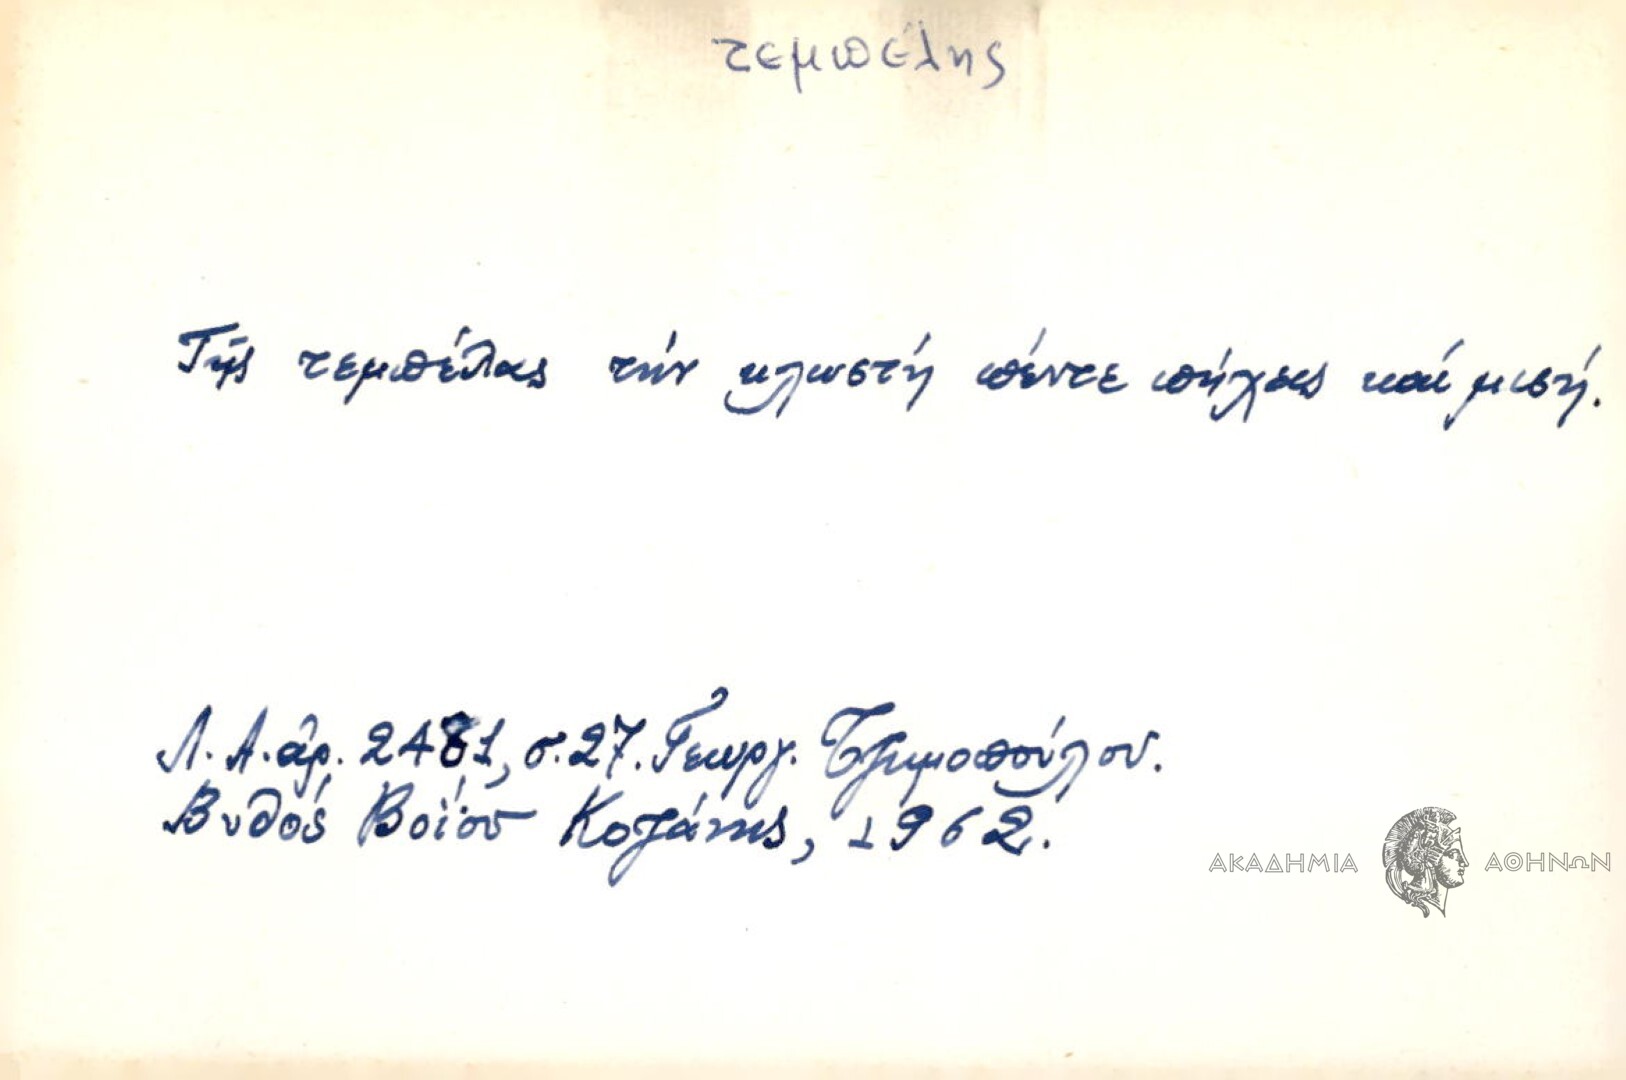 τεμπέλης
Τῆς τεμπέλας τήν κλωστή πέντε πήχεις καί μισή.
Λ. Α. ἀρ. 2481, σ. 27. Γεωργ. Τζημοπούλου.
Βυθός Βοΐου Κοζάνης, 1962.
ΑΚΑΔΗΜΙΑ ΑΘΗΝΩΝ